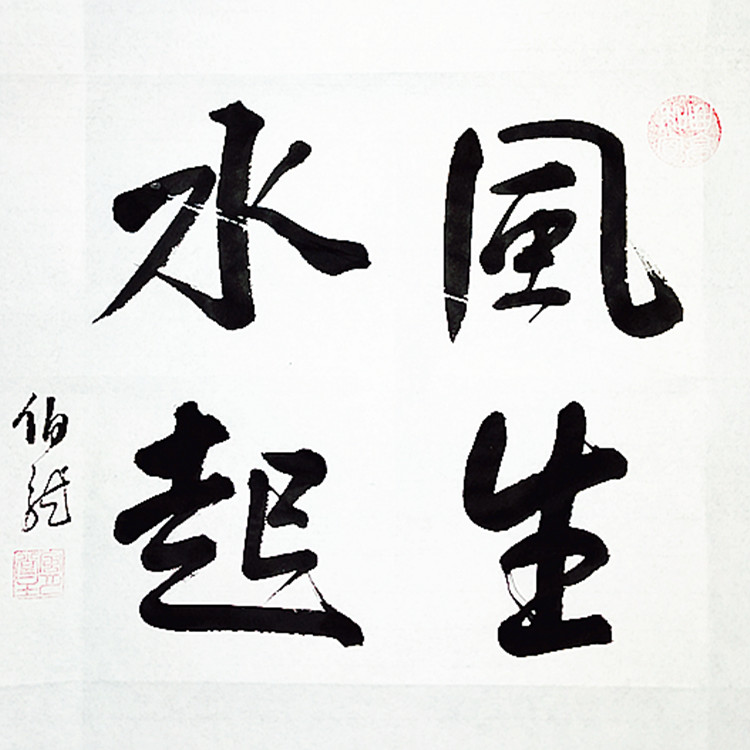 風生
水起
伯龍